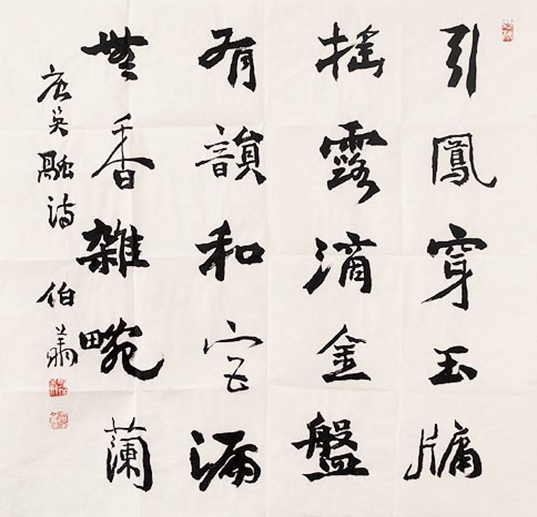 引鳳穿玉牖
摇露滴金盤
有韻和宫漏
無香雜畹蘭
唐吴融詩
伯萧